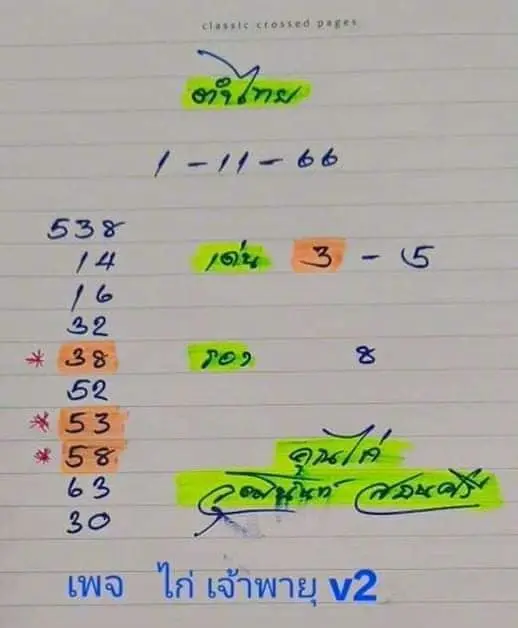 classic crossed pages
1 - 11 - 66
538
14
เด่น 3 - 5
16
32
* 38
รอง 8
52
* 53
* 58
คุณไก่
63
30
เพจ ไก่ เจ้าพายุ v2